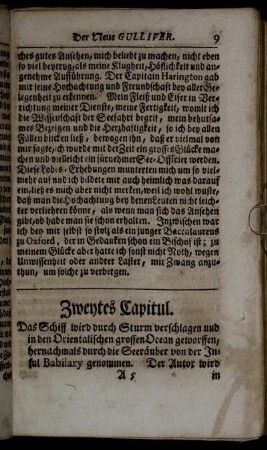 Der Neue GULLIVER. 9
ches gutes Ansehen, mich beliebt zu machen, nicht eben
so viel beytrug, als meine Klugheit, Höflichkeit und an-
genehme Aufführung. Der Capitain Harington gab
mir seine Hochachtung und Freundschafft bey aller Ge-
legenheit zu erkennen. Mein Fleiß und Eifer in Ver-
richtung meiner Dienste, meine Fertigkeit, womit ich
die Wissenschafft der Seefahrt begrif, mein behutsa-
mes Bezeigen und die Hertzhafftigkeit, so ich bey allen
Fällen blicken ließ, bewogen ihn, daß er vielmal von
mir sagte, ich würde mit der Zeit ein grosses Glück ma-
chen und vielleicht ein fürnehmer See-Officier werden.
Diese Lobs-Erhebungen munterten mich um so viel-
mehr auf und ich bildete mir auch heimlich was darauf
ein, ließ es mich aber nicht merken, weil ich wohl wuste,
daß man die Hochachtung bey denen Leuten nicht leich-
ter verliehren könne, als wenn man sich das Ansehen
gibt, ob habe man sie schon erhalten. Inzwischen war
ich bey mir selbst so stolz als ein junger Baccalaureus
zu Oxford, der in Gedancken schon ein Bischof ist; zu
meinem Glücke aber hatte ich sonst nicht Noth, wegen
Unwissenheit oder ander Laster, mir Zwang anzu-
thun, um solche zu verbergen.
Zweytes Capitul.
Das Schiff wird durch Sturm verschlagen und
in den Orientalischen grossen Ocean geworffen,
hernachmals durch die Seeräuber von der In-
sul Babilary genommen. Der Autor wird
A 5 in